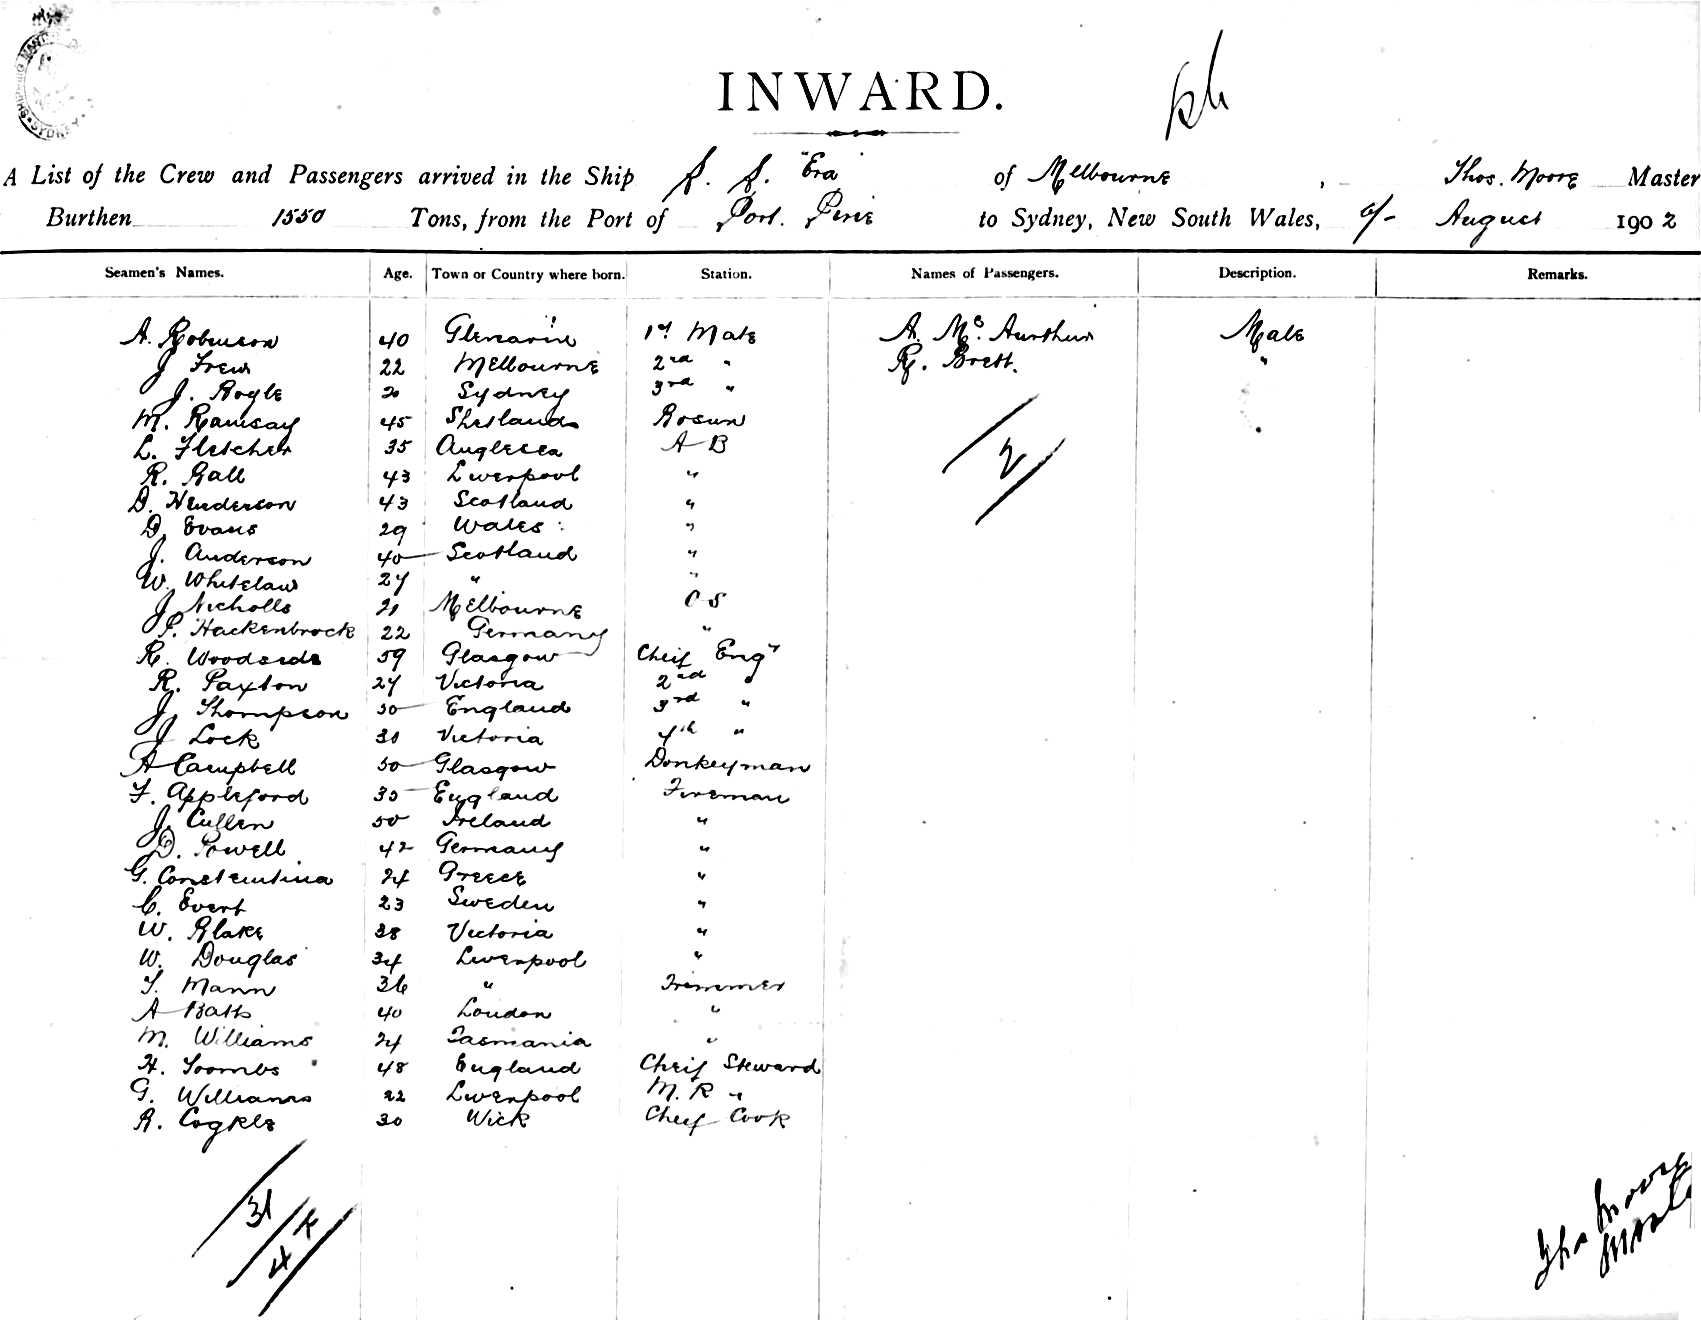 SHIPPING MASTER SYDNEY
INWARD.
A List of the Crew and Passengers arrived in the Ship S. S. "Era" of Melbourne, Thos. Moore Master
Burthen 1550 Tons, from the Port of Port. Pirie to Sydney, New South Wales, August 1902
Seamen's Names. Age. Town or Country where born. Station. Names of Passengers. Description. Remarks.
A. Robinson 40 1st Mate A. Mc. Aurthur Male
J Frew 22 Melbourne 2nd " R. Brett. "
J. Bogle 20 Sydney 3rd "
M. Ramsay 45 Shetlands Bosun
L. Fletcher 35 Anglesea A B
R. Ball 43 Liverpool "
D. Henderson 43 Scotland "
D. Evans 29 Wales "
J. Anderson 40 Scotland "
W. Whitelaw 27 " "
J Nicholls 21 Melbourne O S
P. Hackenbrock 22 Germany "
R. Woodside 59 Glasgow Cheif Engr
R. Paxton 27 Victoria 2nd "
J. Thompson 30 England 3rd "
J Lock 30 Victoria 4th "
A Campbell 50 Glasgow Donkeyman
F. Appleford 35 England Fireman
J. Cullen 50 Ireland "
D. Powell 42 Germany "
G. Constentina 24 Greece "
C. Evert 23 Sweden "
W. Blake 38 Victoria "
W. Douglas 34 Liverpool "
T. Mann 36 " Trimmer
A Batts 40 London "
M. Williams 24 Tasmania "
H. Toombs 48 England Cheif Steward
G. Williams 22 Liverpool M. R "
A. Cogkle 30 Wick Cheif Cook
2
31
4
Thos Moore
Master